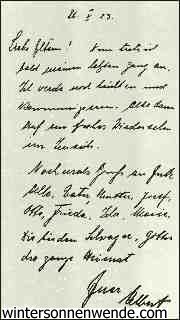 26. V 23.
Liebe Eltern! Nun trete ich
bald meinen letzten Gang an.
Ich werde noch beichten und
kommunizieren. Also dann
auf ein frohes Wiedersehen
im Jenseits.
Nochmals Gruß an
Vater, Mutter, Josef,
Otto, Frieda, Ida,
die beiden Schwager,
die ganze Heimat
Euer Albert
wintersonnenwende.com